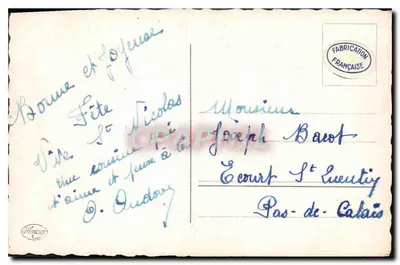 Bonne et Joyeuse
Fête
Vive St Nicolas
Une cousine qui
t'aime et pense à toi
O.
FABRICATION
FRANÇAISE
Monsieur
Joseph Bacot
Ecourt St Quentin
Pas-de-Calais